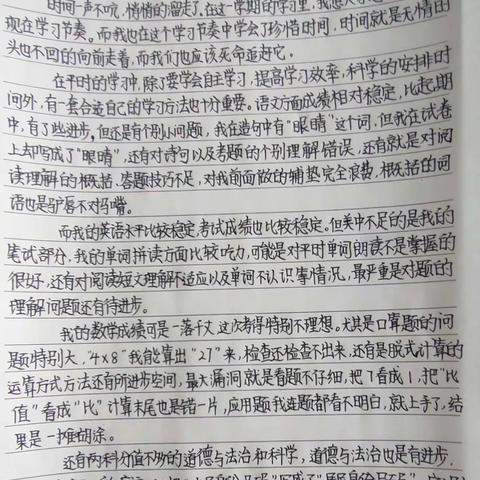 时间一声不吭,悄悄的溜走了,在这一学期的学习里,我
现在学习节奏。而我也在这个学习节奏中学会了珍惜时间,时间就是无情的
头也不回的向前走着,而我们也应该死命追赶它。
在平时的学习中,除了要学会自主学习,提高学习效率,科学的安排时
间外,有一套合适自己的学习方法也十分重要。语文方面成绩相对稳定,比起期
中,有了些进步。但还是有个别小问题,我在造句中有“眼睛”这个词,但我在试卷
上却写成了“眼晴”,还有对诗句以及考题的个别理解错误,还有就是对阅
读理解的概括,答题技巧不足,对我前面做的铺垫完全浪费,概括的词
语也是驴唇不对马嘴。
而我的英语水平比较稳定,考试成绩也比较稳定。但美中不足的是我的
笔试部分,我的单词拼读方面比较吃力,可能是对平时单词朗读不是掌握的
很好,还有对阅读短文理解不适应以及单词不认识等情况,最严重是对题的
理解问题还有待进步。
我的数学成绩可是一落千丈,这次考得特别不理想。尤其是口算题的问
题特别大,“4×8”我能算出“27”来,检查还检查不出来,还有是脱式计算的
运算方式方法还有所进步空间,最大漏洞就是看题不仔细,把7看成1,把“比
值”看成“比”计算末尾也是错一片,应用题我连题都看不明白,就上手了,结
果是一摊胡涂。
还有两科分值不多的道德与法治和科学,道德与法治也是有进步,